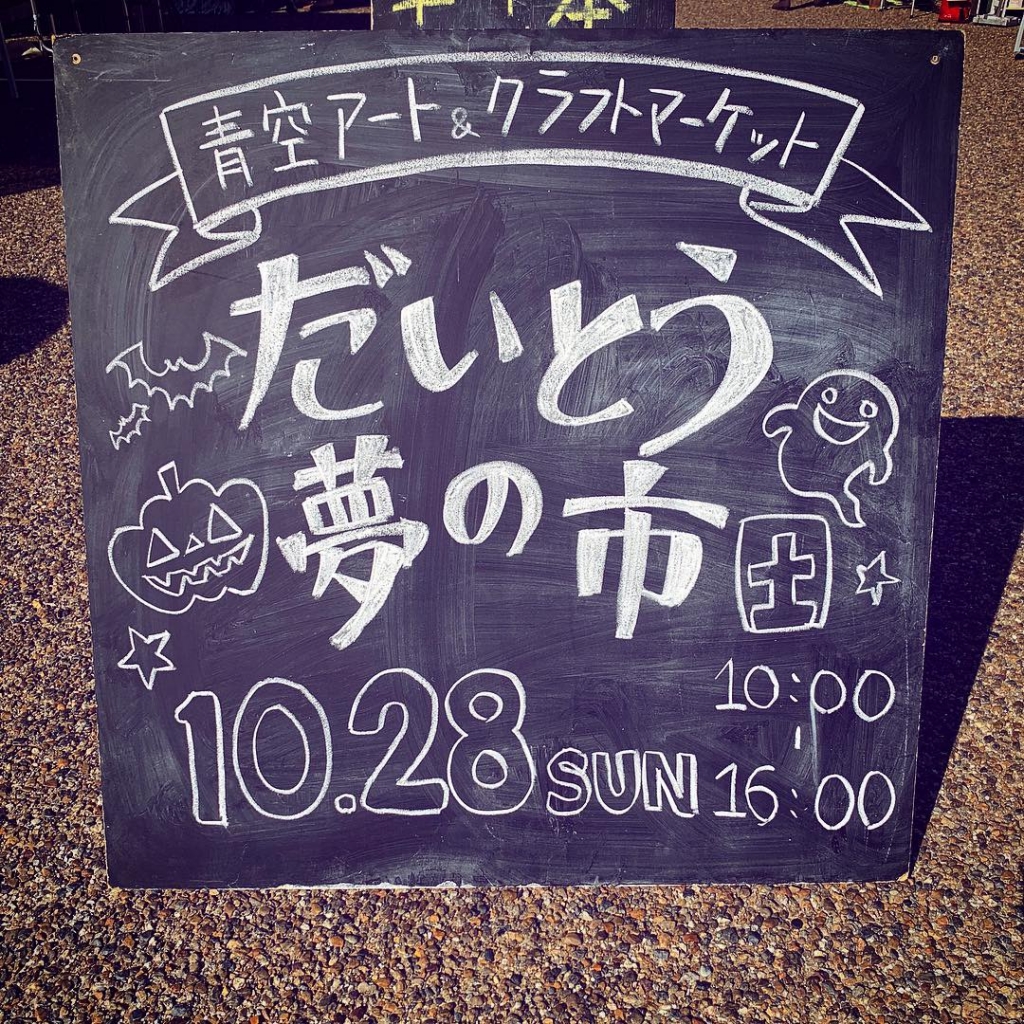 青空アート&クラフトマーケット
だいとう
夢の市
土
10.28 SUN
10:00
-
16:00